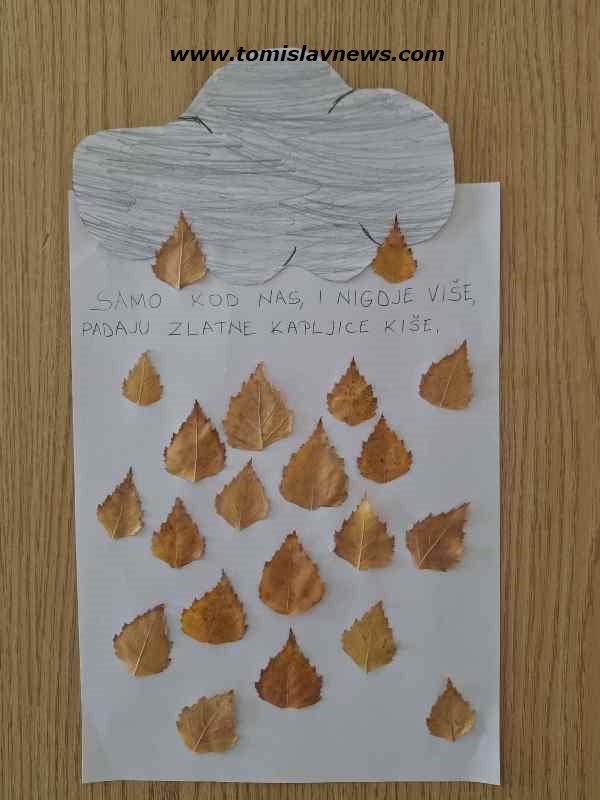 www.tomislavnews.com
SAMO KOD NAS, I NIGDJE VIŠE,
PADAJU ZLATNE KAPLJICE KIŠE.